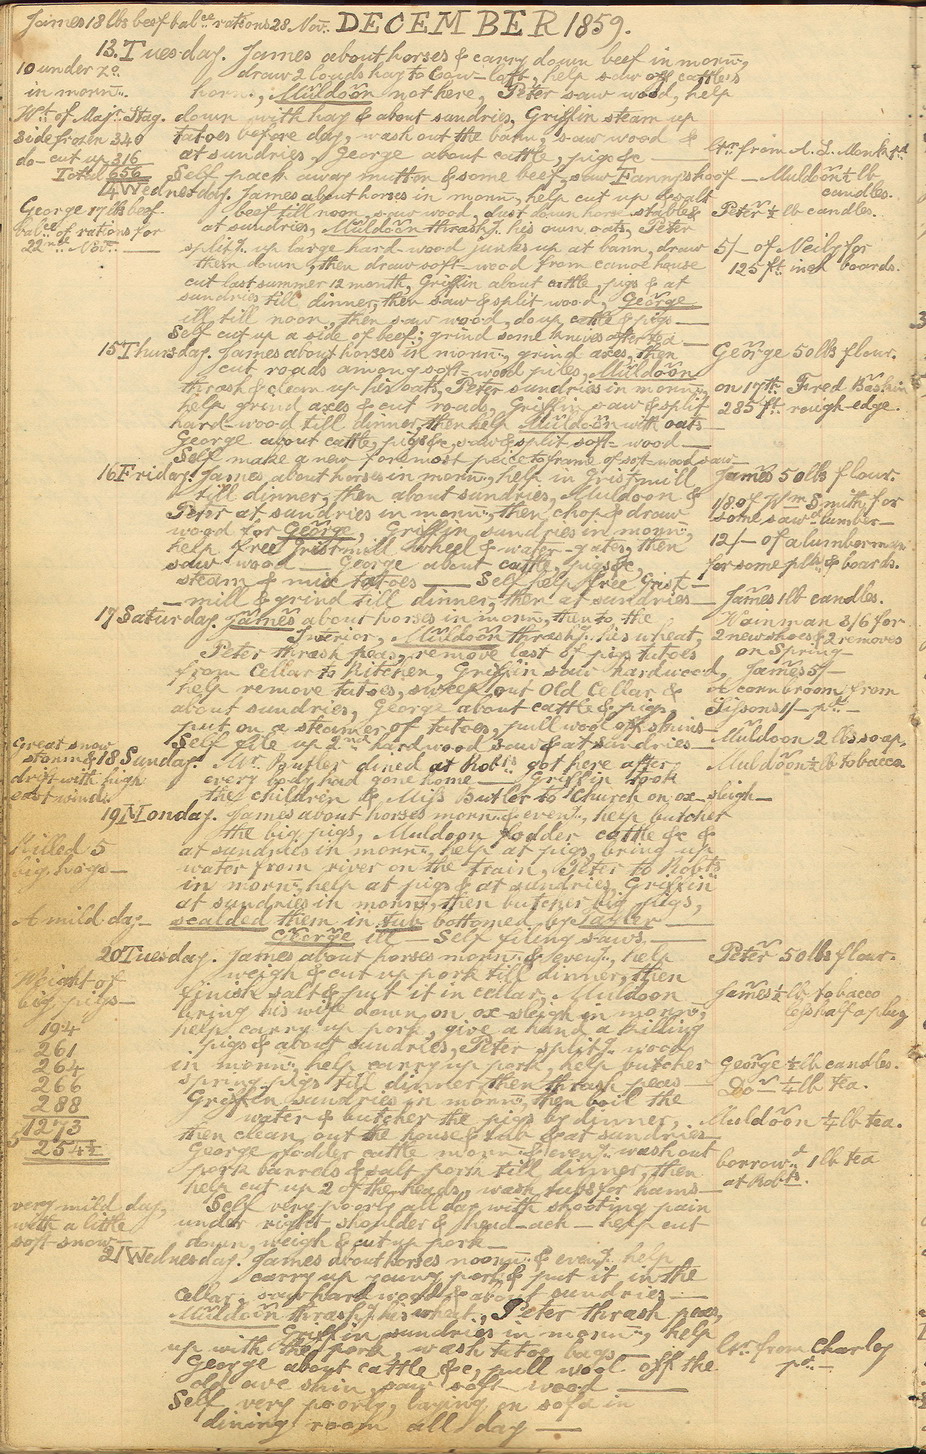 James 18 lbs beef balce rations 28 Nov. DECEMBER 1859.
13. Tuesday. James about horses & carry down beef in mornng,
10 under Zo. draw 2 loads hay to Cow-loft, help saw off cattles
in mornng. horns, Muldoon not here, Peter saw wood, help
Wt. of Majr. Stag. down with hay & about sundries, Griffin steam up
side frozen 340 tatoes before day, wash out the barn, saw wood &
do - cut up 316 at sundries, George about cattle, pigs &c
Total 656 Self pack away mutton & some beef, saw Fannys hoof
ltr. from A. L. Monk pd
Muldoon ½ lb candles.
14 Wednesday. James about horses in mornng, help cut up & salt
George 17 lbs beef beef till noon, saw wood, dust down horse stable &
balce of rations for at sundries, Muldoon thrashg. his own oats, Peter
22nd Nov. splitg. up large hard wood junks up at barn, draw
them down, then draw soft-wood from canoe house
cut last summer 12 month, Griffin about cattle, pigs & at
sundries till dinner, then saw & split wood, George
ill till noon, then saw wood, do up cattle & pigs
Self cut up a side of beef; grind some knives after tea
Peter ½ lb candles.
5/- of Neily for
125 ft. inch boards.
15 Thursday. James about horses in mornng, grind axes, then
cut roads among soft-wood piles, Muldoon
thrash & clean up his oats, Peter sundries in mornng,
help grind axes & cut roads, Griffin saw & split
hard-wood till dinner, then help Muldoon with oats
George about cattle, pigs &c, saw & split soft-wood
Self make a new foremost peice to frame of soft-wood saw
George 50 lbs flour.
on 17th. Fred Baskin
285 ft. rough-edge.
16 Friday. James about horses in mornng, help in Grist-mill
till dinner, then about sundries, Muldoon &
Peter at sundries in mornng, then chop & draw
wood for George, Griffin sundries in mornng,
help free Gristmill wheel & water-gates, then
saw wood George about cattle, pigs &c,
steam & mix tatoes Self help free Grist
mill & grind till dinner, then at sundries
James 50 lbs flour.
1/8 of Wm Smith for
some sawd lumber
12/- of a lumberman
for some & boards.
James 1 lb candles.
17 Saturday. James about horses in mornng, then to the
Interior, Muldoon thrashg. his wheat,
Peter thrash peas, remove last of pigs tatoes
from Cellar to Kitchen, Griffin saw hardwood,
help remove tatoes, sweep out Old Cellar &
about sundries, George about cattle & pigs,
put on a steamer of tatoes, pull wool off skins
Self file up 2nd hardwood saw & at sundries
Wainman 8/6 for
2 new shoes & 2 removes
on Spring
James 5/-
or cornbroom from
Tysons 1/- pd
Muldoon 2 lbs soap,
Muldoon ½ lb tobacco
Great snow
storm & 18 Sunday. Mr. Butler dined at Robts got here after
drift with high every body had gone home Griffin took
east wind. the children & Miss Butler to Church on ox-sleigh
19 Monday. James about horses mornng & eveng, help butcher
the big pigs, Muldoon fodder cattle &c &
Killed 5 at sundries in mornng, help at pigs, bring up
big hogs water from river on the train, Peter to Robts
in mornng, help at pigs & at sundries, Griffin
at sundries in mornng, then butcher big pigs,
A mild day scalded them in tub bottomed by Tayler
George ill Self filing saws.
20 Tuesday. James about horses mornng & eveng, help
Weight of weigh & cut up pork till dinner, then
big pigs finish salt & put it in cellar, Muldoon
bring his wife down on ox sleigh in mornng,
194 help carry up pork, give a hand a killing
261 pigs & about sundries, Peter splitg. wood
264 in mornng, help carry up pork, help butcher
266 spring pigs till dinner, then thrash peas
288 Griffin sundries in mornng, then boil the
1273 water & butcher the pigs by dinner,
5 254½ then clean out the house & tub & at sundries
George fodder cattle mornng & eveng. wash out
pork barrels & salt pork till dinner, then
help cut up 2 of the heads, wash tubs for hams
very mild day, Self very poorly all day with shooting pain
with a little under right shoulder & head-ach help cut
soft snow down, weigh & cut up pork
Peter 50 lbs flour.
James ½ lb tobacco
less half a plug
George ½ lb candles.
Do ¼ lb tea.
Muldoon ¼ lb tea.
borrowd 1 lb tea
at Robts.
21 Wednesday. James about horses noonng & eveng. help
carry up young pork & put it in the
cellar, saw hard wood & about sundries
Muldoon thrashg his wheat, Peter thrash peas,
Griffin sundries in mornng, help
up with the pork, wash tatoe bags
George about cattle &c, pull wool off the
old ave skin, saw soft-wood
Self very poorly, laying on sofa in
dining room all day
ltr. from Charley
pd